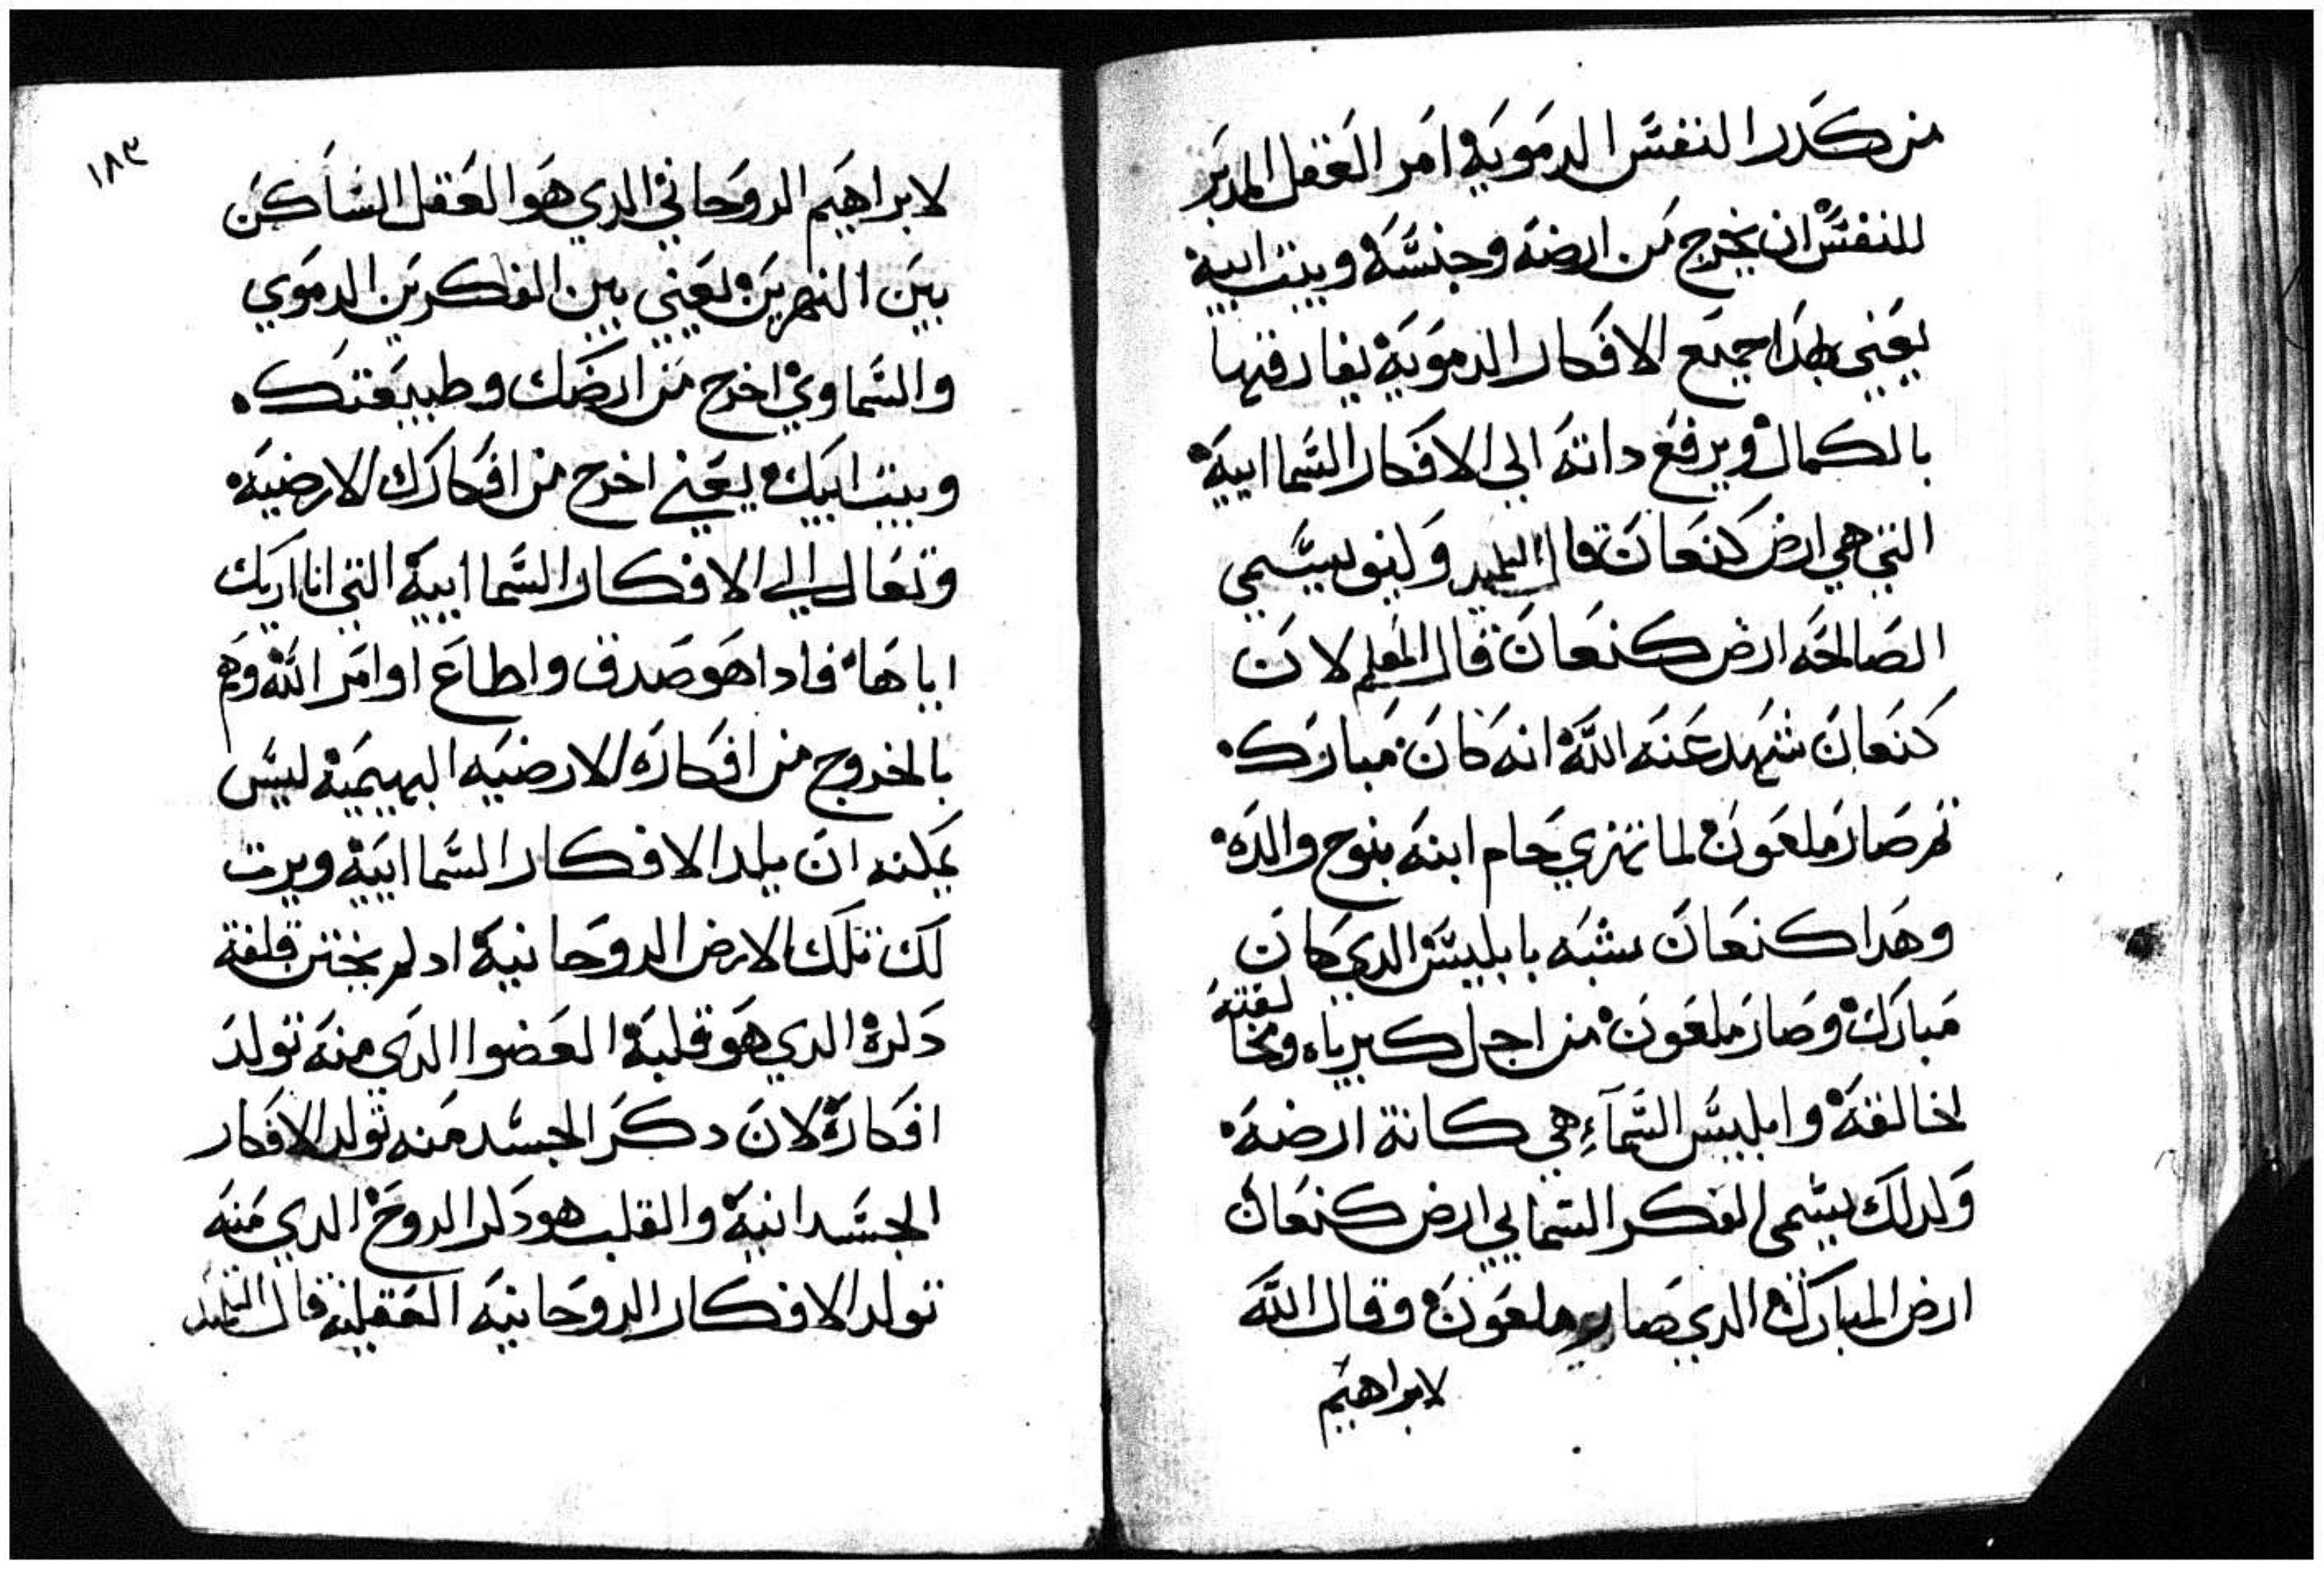 من كدر النفس الدموية امر العقل المدبر
للنفس ان يخرج من ارضه وجنسه وبيت ابيه
يعني بهدا جميع الافكار الدموية يفارقها
بالكمال ويرفع داته الى الافكار السماايية
التي هي ارض كنعان قال التلميد وليف يسمي
الصالحه ارض كنعان قال المعلم لان
كنعان شهد عنه الله انه كان مبارك
تم صار ملعون لما تهزي حام ابنه بنوح والده
وهدا كنعان مشبه بابليس الدي كان
مبارك وصار ملعون من اجل كبرياه ومخالفته
لخالقه وابليس السماء هي كانة ارضه
ولدلك يسمى الفكر السمايي ارض كنعان
ارض المبارك الدي صار ملعون وقال الله
لابراهيم
١٨٣
لابراهيم الروحاني الدي هو العقل الساكن
بين النهرين يعني بين الفكرين الدموي
والسماوي اخرج من ارضك وطبيعتك
وبيت ابيك يعني اخرج من افكارك الارضية
وتعال الى الافكار السماايية التي انا اريك
اياها فادا هو صدق واطاع اوامر الله وهم
بالخروج من افكاره الارضيه البهيمية ليس
يمكنه ان يلد الافكار السماايية ويرت
لك تلك الارض الروحانية اد لم يختن قلفة
دكره الدي هو قلبه العضوا الدي منه تولد
افكاره لان دكر الجسد منه تولد الافكار
الجسدانية والقلب هو دكر الروح الدي منه
تولد الافكار الروحانيه العقلية قال التلميد